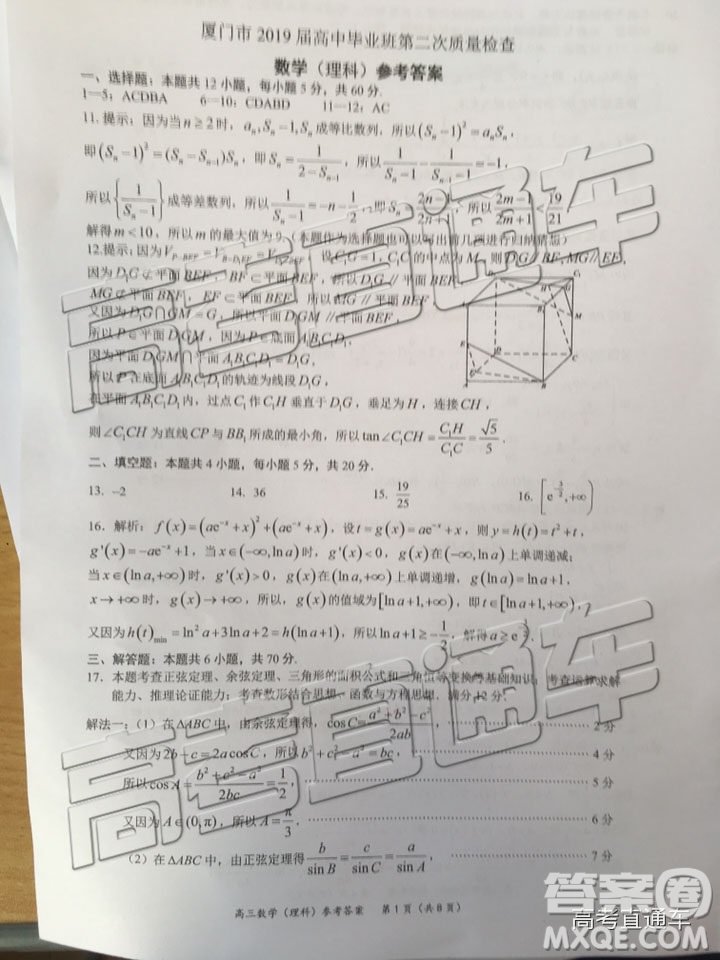 厦门市 2019 届高中毕业班第二次质量检查
数学（理科）参考答案
一、选择题：本题共 12 小题，每小题 5 分，共 60 分.
1—5：ACDBA 6—10：CDABD 11—12：AC
11.提示：因为当 n ≥ 2 时，aₙ, Sₙ−1, Sₙ 成等比数列，所以 (Sₙ−1)² = aₙSₙ，
即 (Sₙ−1)² = (Sₙ−Sₙ₋₁)Sₙ，即 Sₙ = 1/(2−Sₙ₋₁)，所以 1/(Sₙ−1) − 1/(Sₙ₋₁−1) = −1，
所以 {1/(Sₙ−1)} 成等差数列，所以 1/(Sₙ−1) = −n−1/2，即 Sₙ = (2n−1)/(2n+1)，所以 (2m−1)/(2m+1) < 19/21，
解得 m < 10，所以 m 的最大值为 9.（本题作为选择题也可以写出前几项进行归纳猜想）
12.提示：因为 设 C₁G = 1，C₁C 的中点为 M，则 D₁G∥BF, MG∥EF，
因为 D₁G ⊄ 平面 BEF，BF ⊂ 平面 BEF，所以 D₁G∥平面 BEF，
MG ⊄ 平面 BEF，EF ⊂ 平面 BEF，所以 MG∥平面 BEF，
又因为 D₁G∩GM = G，所以平面 D₁GM∥平面 BEF，
所以 P ∈ 平面 D₁GM，因为 P ∈ 底面 A₁B₁C₁D₁，
因为平面 D₁GM∩平面 A₁B₁C₁D₁ = D₁G，
所以 P 在底面 A₁B₁C₁D₁ 的轨迹为线段 D₁G，
在平面 A₁B₁C₁D₁ 内，过点 C₁ 作 C₁H 垂直于 D₁G，垂足为 H，连接 CH，
则 ∠C₁CH 为直线 CP 与 BB₁ 所成的最小角，所以 tan∠C₁CH = C₁H/C₁C = √5/5.
二、填空题：本题共 4 小题，每小题 5 分，共 20 分.
13. −2 14. 36 15. 19/25 16. [e^(−3/2), +∞)
16. 解析：f(x) = (ae⁻ˣ+x)²+(ae⁻ˣ+x)，设 t = g(x) = ae⁻ˣ+x，则 y = h(t) = t²+t，
g'(x) = −ae⁻ˣ+1，当 x∈(−∞,ln a) 时，g'(x)<0，g(x) 在 (−∞,ln a) 上单调递减；
当 x∈(ln a,+∞) 时，g'(x)>0，g(x) 在 (ln a,+∞) 上单调递增，g(ln a) = ln a+1，
x→+∞ 时，g(x)→+∞，所以，g(x) 的值域为 [ln a+1,+∞)，即 t∈[ln a+1,+∞)，
又因为 h(t)min = ln²a+3ln a+2 = h(ln a+1)，所以 ln a+1 ≥ 解得 a ≥
三、解答题：本题共 6 小题，共 70 分.
17. 本题考查正弦定理、余弦定理、三角形的面积公式和三角恒等变换等基础知识；考查运算求解
能力、推理论证能力；考查数形结合思想、函数与方程思想. 满分 12 分.
解法一：（1）在 △ABC 中，由余弦定理得，cos C = (a²+b²−c²)/2ab， 2 分
又因为 2b−c = 2a cos C，所以 b²+c²−a² = bc， 4 分
所以 cos A = (b²+c²−a²)/2bc = 1/2， 5 分
又因为 A∈(0,π)，所以 A = π/3. 6 分
（2）在 △ABC 中，由正弦定理得 b/sin B = c/sin C = a/sin A， 7 分
高三数学（理科）参考答案 第 1 页（共 8 页）
高考直通车
高考直通车
答案圈
高考直通车
MXQE.COM